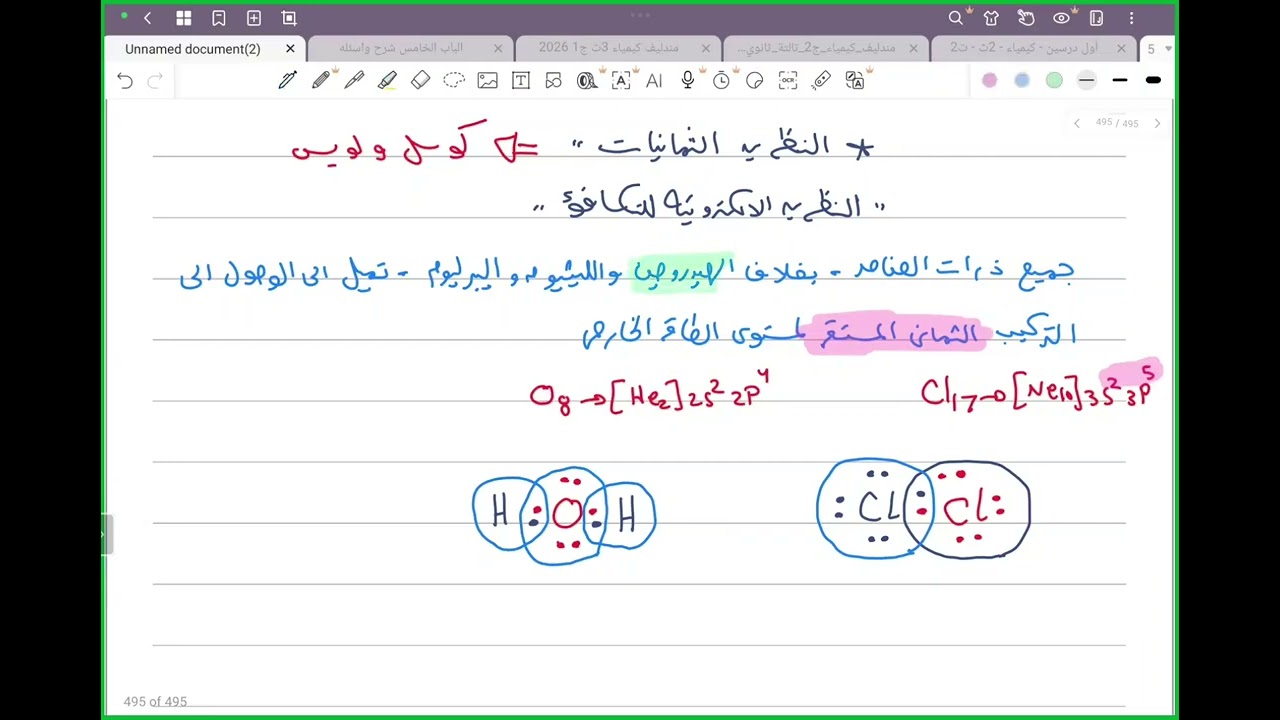 Unnamed document(2)
الباب الخامس شرح واسئله
مندليف كيمياء 3ث ج1 2026
مندليف_كيمياء_ج2_ثالثة_ثانوي...
أول درسين - كيمياء - 2ث - ت2
5
AI
OCR
495 / 495
* النظريه الثمانيات " ⇐ كوسل ولويس
" النظريه الالكترونية للتكافؤ "
جميع ذرات العناصر - بخلاف الهيدروجين والليثيوم والبريليوم - تميل الى الوصول الى
التركيب الثمانى المستقر لمستوى الطاقة الخارجى
Cl17 → [Ne10] 3s² 3p⁵
O8 → [He2] 2s² 2p⁴
Cl Cl
H O H
495 of 495